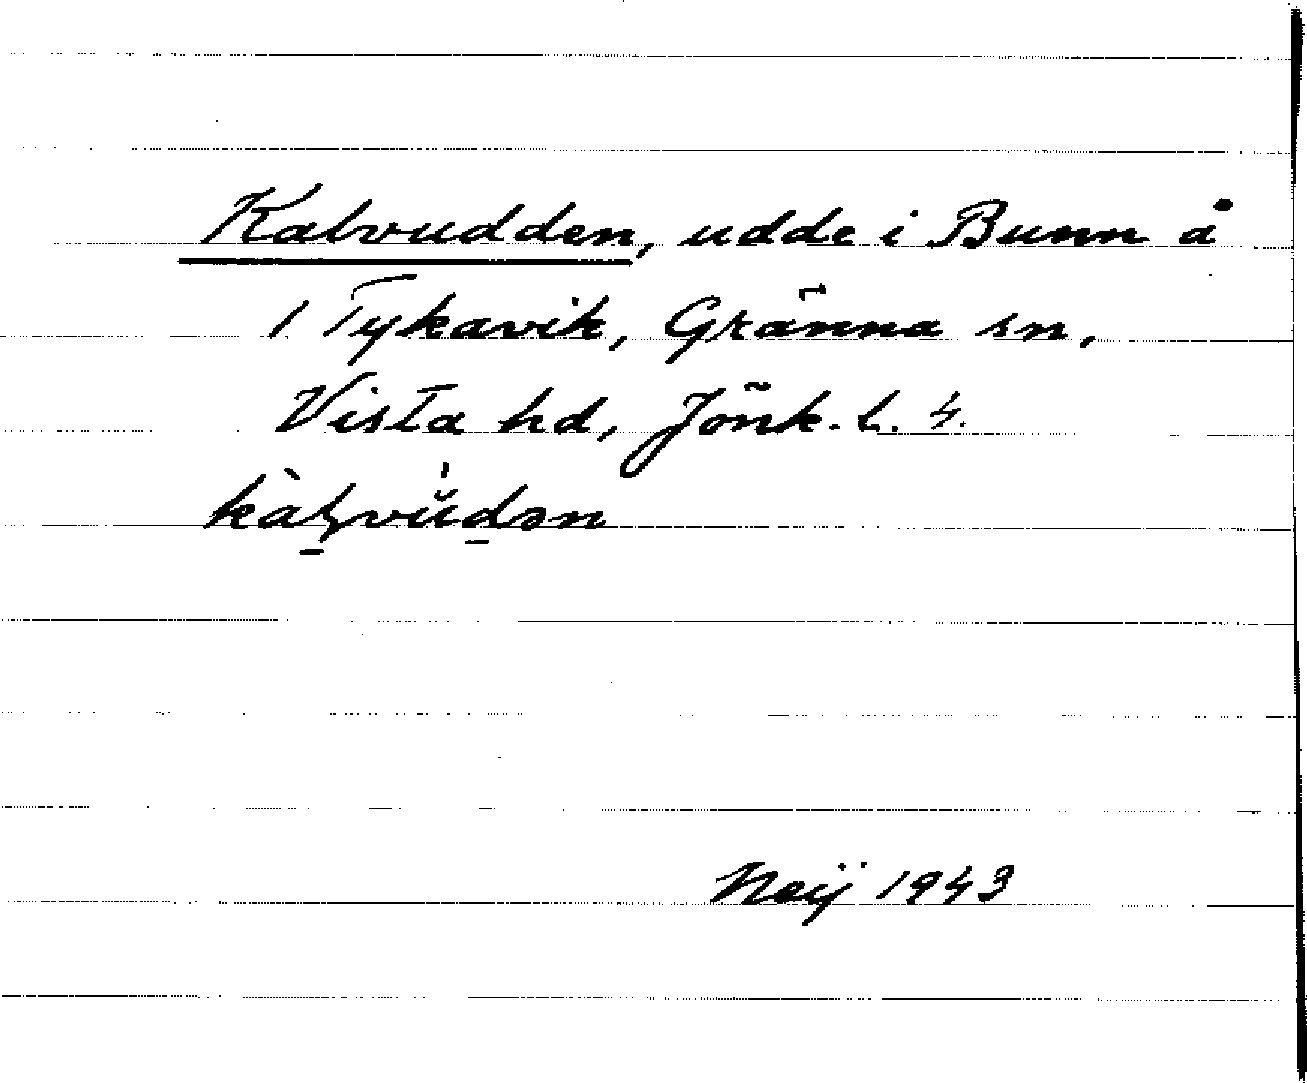 Kalvudden, udde i Bunn å
1 Tykavik, Gränna sn,
Vista hd, Jönk. L. 4.
Neij 1943